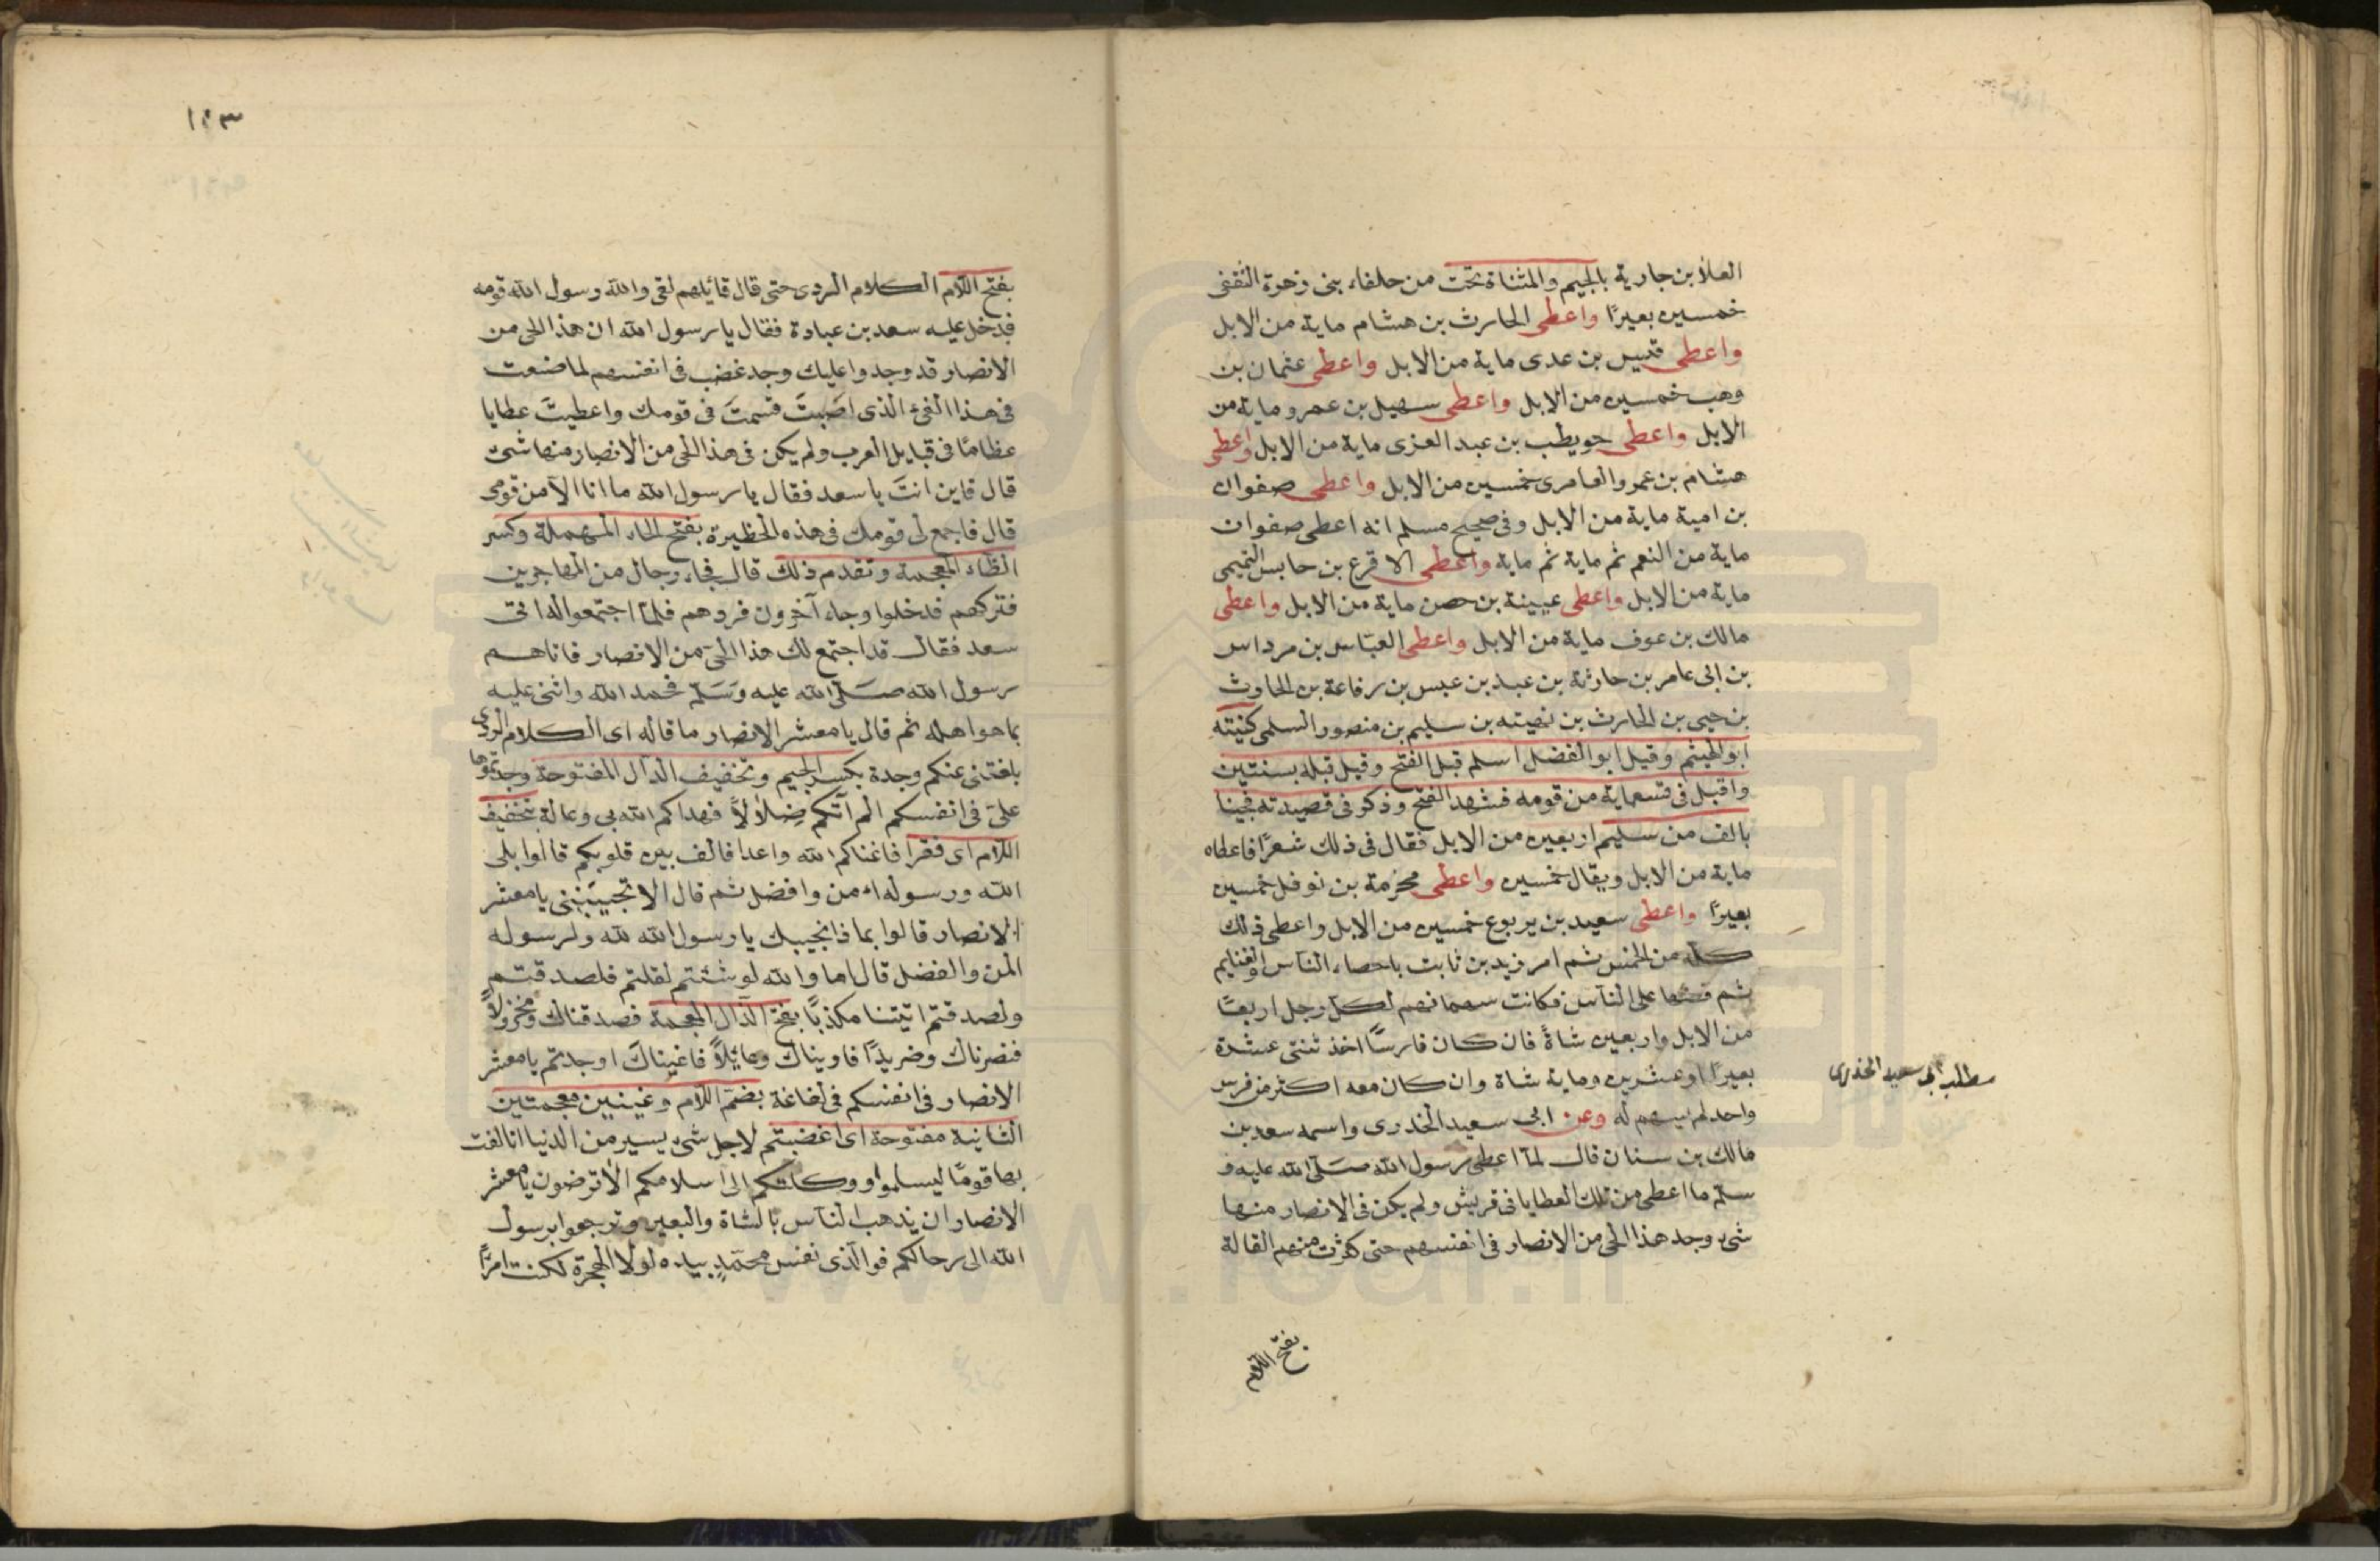 العلاء بن جارية بالجيم والمثناة تحت من حلفاء بنى زهرة الثقفى
خمسين بعيرًا واعطى الحارث بن هشام ماية من الابل
واعطى قيس بن عدى ماية من الابل واعطى عثمان بن
وهب خمسين من الابل واعطى سهيل بن عمرو ماية من
الابل واعطى حويطب بن عبد العزى ماية من الابل واعطى
هشام بن عمرو العامرى خمسين من الابل واعطى صفوان
بن امية ماية من الابل وفى صحيح مسلم انه اعطى صفوان
ماية من النعم ثم ماية ثم ماية واعطى الاقرع بن حابس التميمى
ماية من الابل واعطى عيينة بن حصن ماية من الابل واعطى
مالك بن عوف ماية من الابل واعطى العباس بن مرداس
بن ابى عامر بن حارثة بن عبد بن عبس بن رفاعة بن الحارث
بن حيى بن الحارث بن نهيته بن سليم بن منصور السلمى كنيته
ابو الهيثم وقيل ابو الفضل اسلم قبل الفتح وقيل قبله بسنتين
واقبل فى تسعماية من قومه فشهد الفتح وذكر فى قصيدته فجينا
بالف من سليم اربعين من الابل فقال فى ذلك شعرًا فاعطاه
ماية من الابل ويقال خمسين واعطى مخرمة بن نوفل خمسين
بعيرًا واعطى سعيد بن يربوع خمسين من الابل واعطى ذلك
كله من الخمس ثم امر زيد بن ثابت باحصاء الناس والغنايم
ثم قسمها على الناس فكانت سهمانهم لكل رجل اربعًا
من الابل واربعين شاةً فان كان فارسًا اخذ ثنتى عشرة
بعيرًا او عشرين وماية شاة وان كان معه اكثر من فرس
واحد لم يسهم له وعن ابى سعيد الخدرى واسمه سعد بن
مالك بن سنان قال لما اعطى رسول الله صلى الله عليه و
سلم ما اعطى من تلك العطايا فى قريش ولم يكن فى الانصار منها
شىء وجد هذا الحى من الانصار فى انفسهم حتى كثرت منهم القالة
مطلب ابى سعيد الخدرى
بفتح اللام
١٩٣
بفتح اللام الكلام الردى حتى قال قائلهم لقى والله رسول الله قومه
فدخل عليه سعد بن عبادة فقال يا رسول الله ان هذا الحى من
الانصار قد وجدوا عليك وجد غضب فى انفسهم لما صنعت
فى هذا الفىء الذى اصبتَ قسمتَ فى قومك واعطيتَ عطايا
عظامًا فى قبايل العرب ولم يكن فى هذا الحى من الانصار منها شىء
قال فاين انتَ يا سعد فقال يا رسول الله ما انا الا من قومى
قال فاجمع لى قومك فى هذه الحظيرة بفتح الحاء المهملة وكسر
الظاء المعجمة وتقدم ذلك قال فجاء رجال من المهاجرين
فتركهم فدخلوا وجاء آخرون فردهم فلما اجتمعوا له اتى
سعد فقال قد اجتمع لك هذا الحى من الانصار فاتاهم
رسول الله صلى الله عليه وسلم فحمد الله واثنى عليه
بما هو اهله ثم قال يا معشر الانصار ما قاله اى الكلام الردى
بلغتنى عنكم وجدة بكسر الجيم وتخفيف الدال المفتوحة وجدتموها
علىّ فى انفسكم الم آتكم ضِلالًا فهداكم الله بى وعالة بتخفيف
اللام اى فقرا فاغناكم الله واعدا فالف بين قلوبكم قالوا بلى
الله ورسوله امن وافضل ثم قال الا تجيبننى يا معشر
الانصار قالوا بماذا نجيبك يا رسول الله لله ولرسوله
المن والفضل قال اما والله لو شئتم لقلتم فلصدقتم
ولصدقتم اتيتنا مكذبًا بفتح الذال المعجمة فصدقناك ومخذولًا
فنصرناك وضريدًا فاويناك وعايلًا فاغيناكَ اوجدتم يا معشر
الانصار فى انفسكم فى لغاغة بضم اللام وغينين معجمتين
الثانية مفتوحة اى اغضبتم لاجل شىء يسير من الدنيا انا الفت
بها قومًا ليسلموا ووكلتكم الى اسلامكم الا ترضون يا معشر
الانصار ان يذهب الناس بالشاة والبعير وترجعوا برسول
الله الى رحالكم فوالذى نفس محمدٍ بيده لولا الهجرة لكنت امرًا